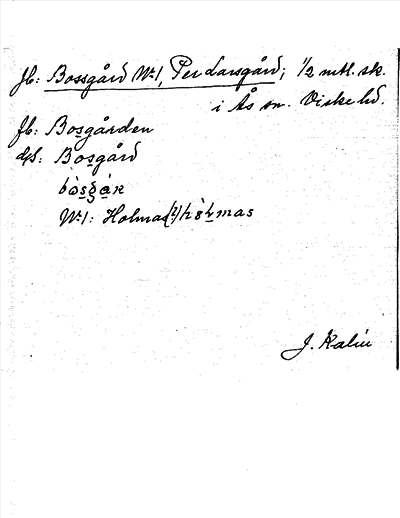 Jb: Bossgård No 1, Per Larsgård; 1/2 mtl. sk.
i Ås sn. Viske hd.
Jb: Bosgården
dfs: Bosgård
bòsgár
No 1: Holmas(?)/
J. Kalén